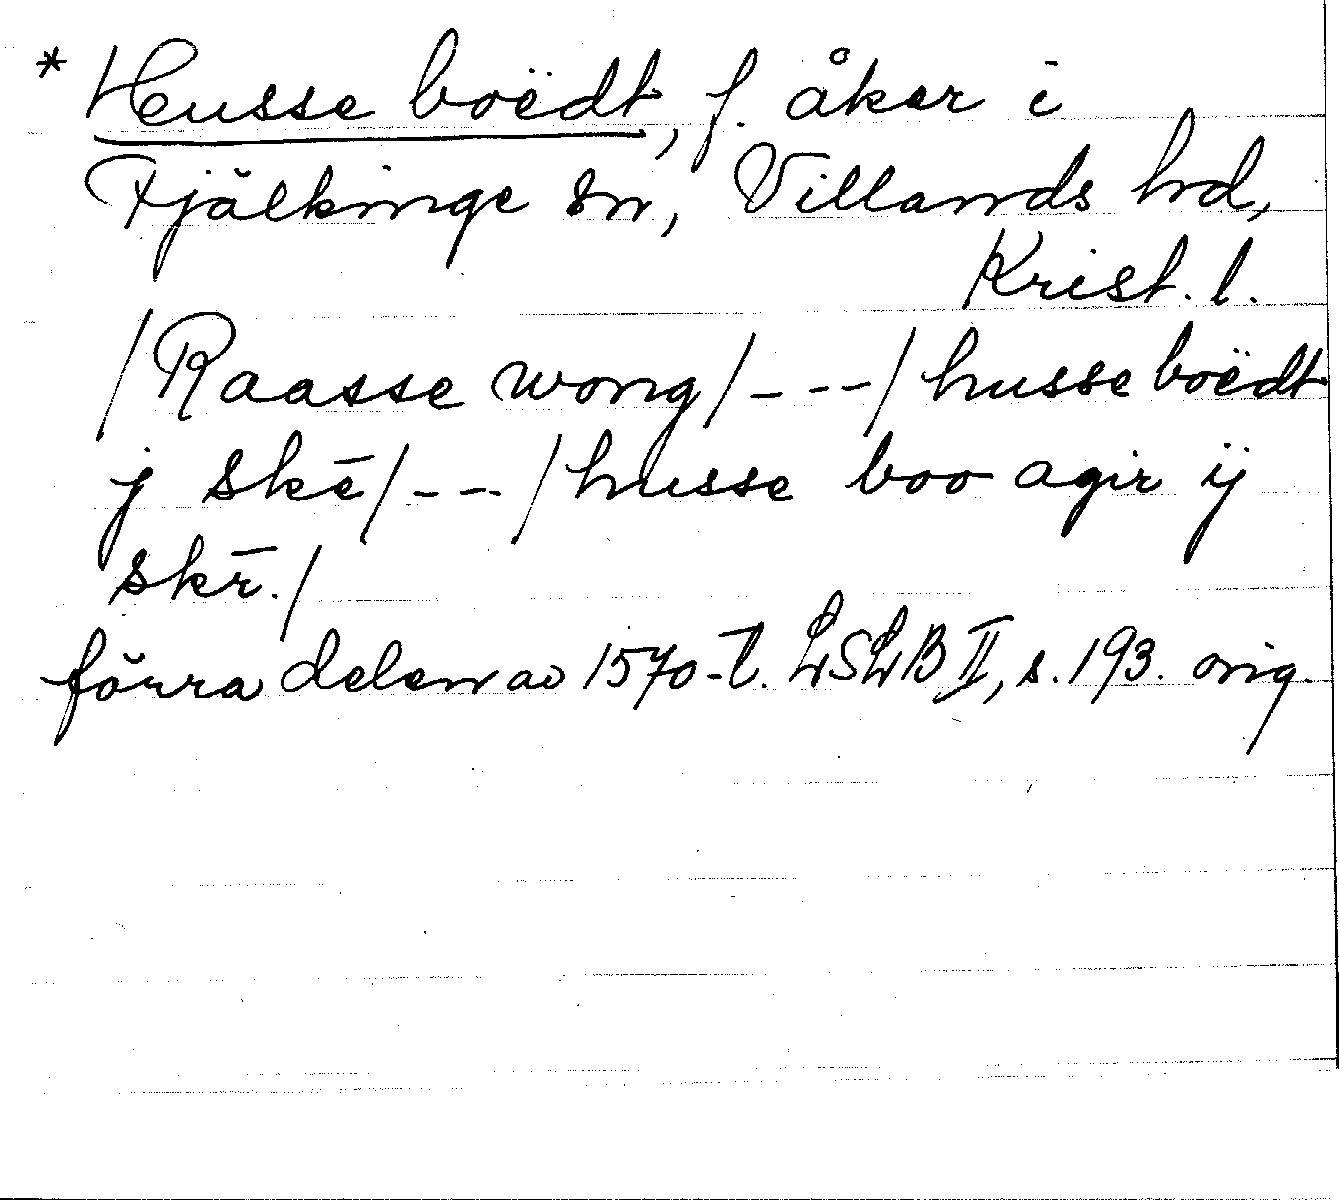 * Husse boëdt, f. åker i
Fjälkinge sn, Villands hd,
Krist. l.
/Raasse wong/---/husse boëdt
j skē/---/husse boo agir ij
skr̄./
förra delen av 1570-t. LSLB II, s. 193. orig.